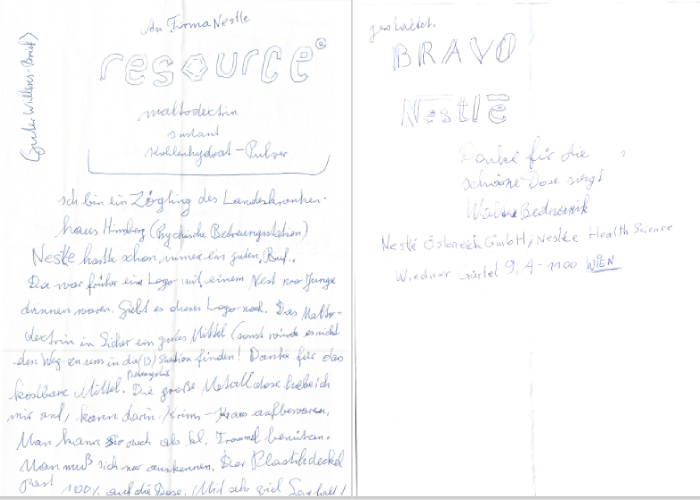 An Firma Nestle
(Guter Willens-Brief)
resource®
maltodextrin
instant
Kohlenhydrat-Pulver
ich bin ein Zögling des Landeskranken-
haus Himberg (Psychische Betreuungsstation)
Nestle hatte schon immer ein guten Ruf.
Da war früher ein Logo mit einem Nest wo Junge
drinnen waren. Gibt es dieses Logo noch. Das Malto-
dextrin is sicher ein gutes Mittel (sonst würde es nicht
den Weg zu uns in die Station finden! Danke für das
kostbare Mittel. Die große Metalldose hebe ich
mir auf, kann darin Krims-Krams aufbewaren.
Man kann Sie auch als kl. Trommel benützen.
Man muß sich nur auskennen. Der Plastikdeckel
passt 100% auf die Dose. Mit sehr viel
gestaltet.
BRAVO
Nestlē
Danke für die
schöne Dose sagt
Nestlé Österreich GmbH, Nestle Health Science
Wiedner Gürtel 9, A-1100 WIEN